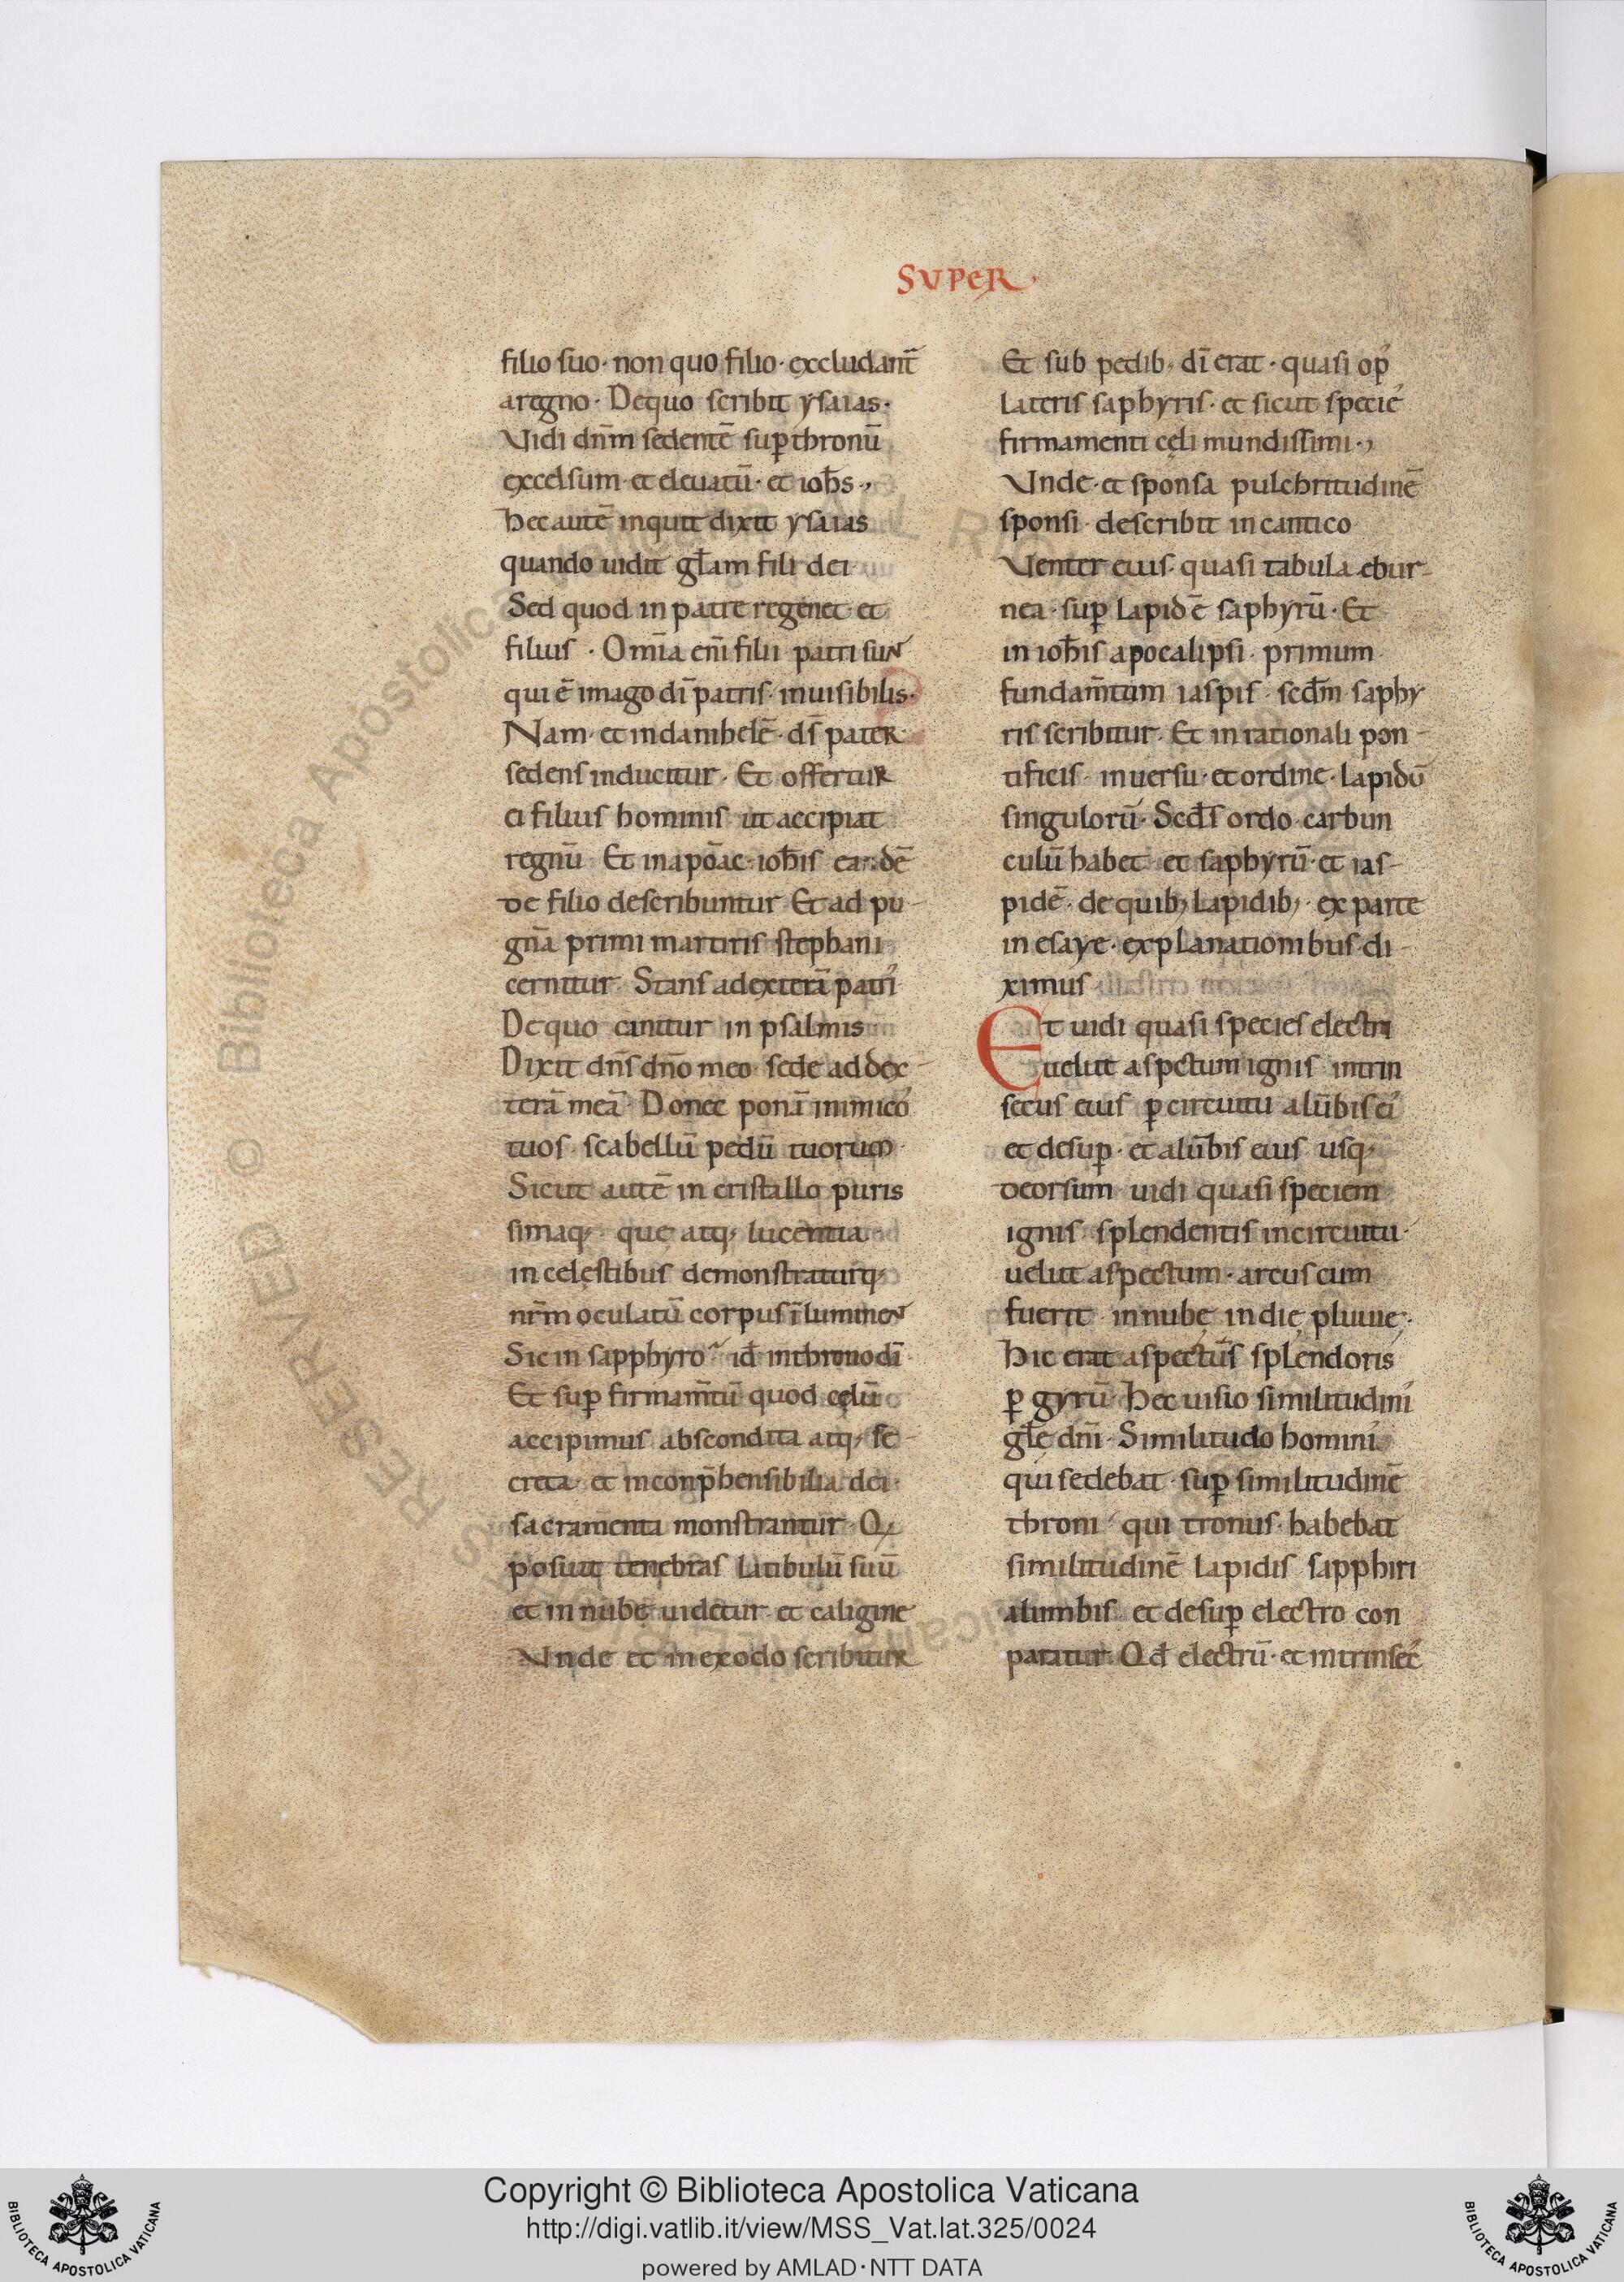 SVPER.
filio suo· non quo filio· excludant̄
a regno· De quo scribit ysaias·
Vidi dn̄m sedentē sup̱ thronū
excelsum· et eleuatū· et ioh̄s·,
hec autē inquit dixit ysaias
quando uidit gl̄am fili dei
Sed quod in patre regenet· et
filius · Omīa enī filii patri sun
qui ē imago dī patris· inuisibilis·
Nam· et in danihelē· ds̄ pater
sedens inducitur· Et offertur
ei filius hominis ut accipiat
regnū Et in apōac· ioh̄is
de filio describuntur Et ad pu-
gnā primi martiris stephani
cernitur· Stans a dexterā patri᾿
De quo canitur in psalmis
Dixit dn̄s dn̄o meo· sede ad dex-
terā meā· Donec ponā inimico᾿
tuos· scabellū pedū tuorum·
Sicut autē in cristallo puris
simaq; que atq; lucentia
in celęstibus demonstraturq;
nr̄m oculatū corpus ī lumine
Sic in sapphyro id̄ in throno dī·
Et sup̱ firmam̄tū quod cęlū
accipimus abscondita atq; se-
creta· et inconp̄hensibilia dei·
sacram̄enta monstrantur· Q;
posuit tenebras latibulū suū
et in nubę uidetur· et caligine
Vnde et in exodo scribitur
Et sub pedib; dī erat· quasi op᾿
lateris saphyris· et sicut specie᾿
firmamenti cęli mundissimi·,
Vnde· et sponsa pulchritudinē
sponsi· describit in cantico
Venter eius· quasi tabula ebur-
nea· sup̱ lapidē saphyrū· Et
in ioh̄is apocalipsi· primum
fundam̄tum iaspis· sed̄m saphy
ris scribitur· Et in rationali pon-
tificis· in uersu· et ordine· lapidū
singulorū· Sed̄s ordo carbun
culū habet· et saphyrū· et ias-
pidē· de quib; lapidib; ex parte
in esaye· explanationibus di-
ximus
Et uidi quasi species electri
uelut aspectum ignis intrin
secus eius p̱ circuitu a lūbis ei᾿
et desup̱· et a lūbis eius usq;
deorsum uidi quasi speciem
ignis splendentis in circuitu·
uelut aspectum· arcus cum
fuerit in nubę in dię pluuię·
hic erat aspectus splendoris
p̱ gyrū· hec uisio similitudini᾿
gl̄ę dn̄i· Similitudo homini᾿
qui sedebat· sup̱ similitudinē
throni qui tronus· habebat
similitudinē lapidis sapphiri
a lumbis· et desup̱ electro con
paratur· Qd̄ electrū· et intrinsec᾿
Copyright © Biblioteca Apostolica Vaticana
http://digi.vatlib.it/view/MSS_Vat.lat.325/0024
powered by AMLAD·NTT DATA
BIBLIOTECA APOSTOLICA VATICANA
BIBLIOTECA APOSTOLICA VATICANA